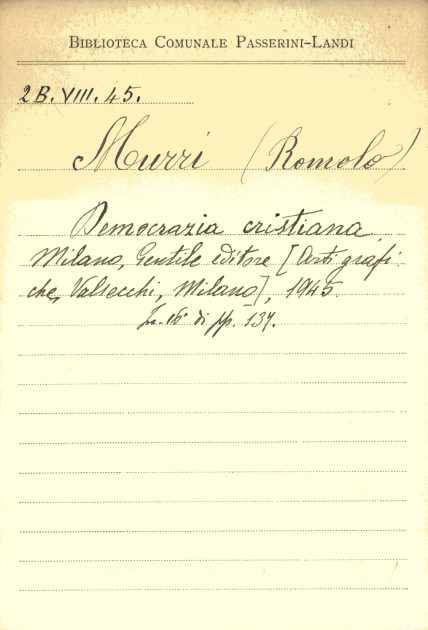 BIBLIOTECA COMUNALE PASSERINI-LANDI
2B. VIII. 45.
Murri (Romolo)
Democrazia cristiana,
Milano, Gentile editore [Arti grafi-
che, Valsecchi, Milano], 1945.
In-16° di pp. 137.